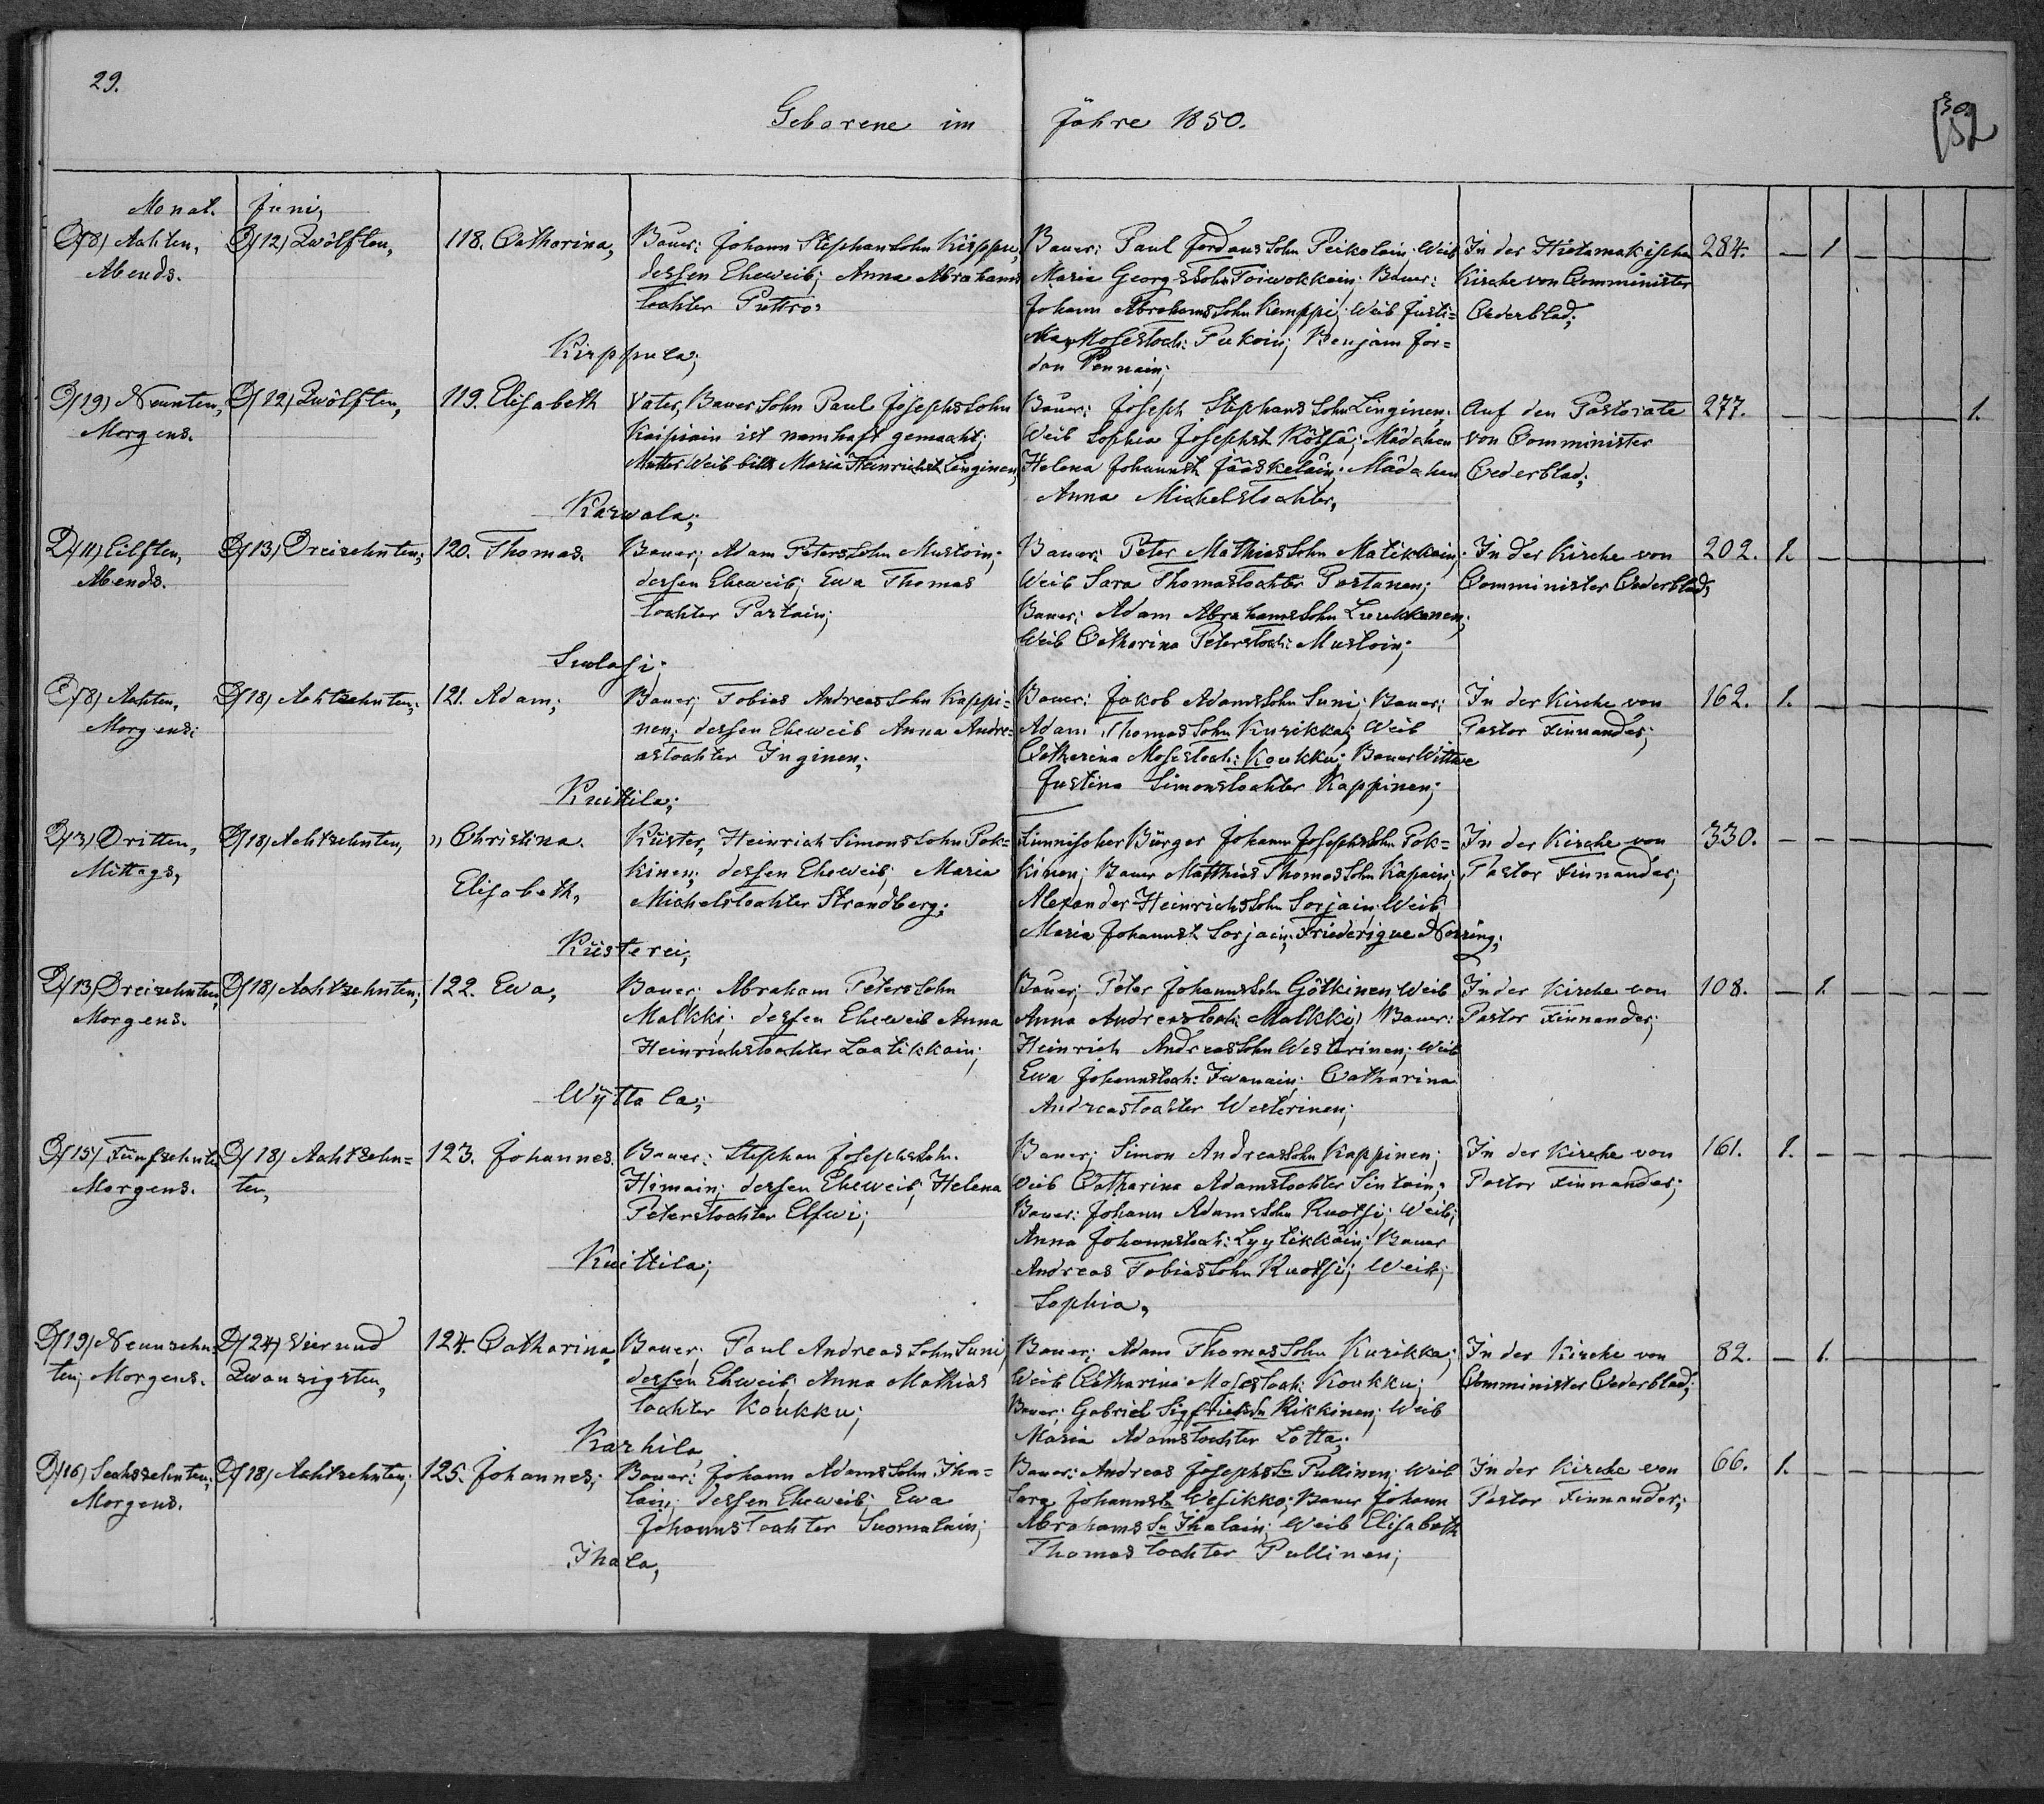 29.
Geborene im Jahre 1850.
Monat. Juni,
D/8/ Achten, Abends.
D/12/ Zwölften,
118. Catharina,
Bauer: Johann Stephansohn Kirppu,
dessen Eheweib; Anna Abrahams
tochter Puttro,
Kirppula;
Bauer: Paul Jordanssohn Peikolain; Weib
Maria Georgssohn Toiwokkain; Bauer:
Johann Abrahamssohn Kemppi; Weib Justi=
na, Mosestoch: Pukoin; Benjam Jor=
dan Pennain;
In der Hietamakischen
Kirche von Comminister
Cederblad;
284. — 1 — — — —
D/19/ Neunten, Morgens.
D/12/ Zwölften,
119. Elisabeth
Vater, Bauer Sohn Paul Josephssohn
Kaipiain ist namhaft gemacht;
Mutter Weib bild Maria Heinrichst. Linginen;
Karwala;
Bauer: Joseph Stephanssohn Linginen;
Weib Sophia Josephst. Kötsä; Mädchen
Helena Johannst. Jääskeläin; Mädchen
Anna Michelstochter,
Auf den Pastorate
von Comminister
Cederblad;
277. — — — — — 1.
D/11/ Eilften, Abends.
D/13/ Dreizehnten;
120. Thomas.
Bauer; Adam Peterssohn Mustoin;
dessen Eheweib; Ewa Thomas
tochter Partain;
Suolasi;
Bauer: Peter Mathiassohn Matikkain;
Weib Sara Thomastochter Portanen;
Bauer: Adam Abrahamssohn Luukkanen;
Weib Catharina Peterstoch: Mustoin;
In der Kirche von
Comminister Cederblad;
202. 1. — — — — —
D/8/ Achten, Morgens;
D/18/ Achtzehnten;
121. Adam;
Bauer; Tobias Andreassohn Kappi=
nen; dessen Eheweib Anna Andre=
astochter Inginen;
Kuittila;
Bauer: Jakob Adamssohn Suni; Bauer;
Adam Thomassohn Kurikka; Weib
Catharina Mosestoch: Koukku; Bauer Wittwe
Justina Simonstochter Kappinen;
In der Kirche von
Pastor Finnander;
162. 1. — — — — —
D/3/ Dritten, Mittags,
D/18/ Achtzehnten,
" Christina.
Elisabeth,
Küster, Heinrich Simonssohn Pok=
kinen; dessen Eheweib; Maria
Michelstochter Strandberg;
Küsterei,
Finnischer Bürger Johann Josephssohn Pok=
kinen; Bauer Matthias Thomassohn Kapain;
Alexander Heinrichssohn Sorjain; Weib
Maria Johannst. Sorjain; Friederique Norring;
In der Kirche von
Pastor Finnander;
330. — — — — — —
D/13/ Dreizehnten, Morgens.
D/18/ Achtzehnten;
122. Ewa,
Bauer: Abraham Peterssohn
Malkki; dessen Eheweib Anna
Heinrichstochter Laatikkain;
Wÿttala;
Bauer; Peter Johannssohn Götkinen; Weib
Anna Andreastoch: Malkki; Bauer:
Heinrich Andreassohn Westerinen; Weib
Ewa Johannstoch: Iwanain; Catharina
Andreastochter Westerinen;
In der Kirche von
Pastor Finnander;
108. — 1. — — — —
D/15/ Fünfzehnten, Morgens.
D/18/ Achtzehn=
ten,
123. Johannes.
Bauer: Stephan Josephssohn.
Himain; dessen Eheweib; Helena
Peterstochter Elfwi;
Kuittila;
Bauer; Simon Andreassohn Kappinen;
Weib Catharina Adamstochter Sintoin;
Bauer: Johann Adamssohn Ruotsi; Weib;
Anna Johannstoch: Lyytikkäin; Bauer
Andreas Tobiassohn Ruotsi; Weib;
Sophia,
In der Kirche von
Pastor Finnander;
161. 1. — — — — —
D/19/ Neunzehn=
ten; Morgens.
D/24/ Vier und
Zwanzigsten,
124. Catharina,
Bauer; Paul Andreassohn Suni,
dessen Eheweib; Anna Mathias
tochter Koukku;
Karhila
Bauer; Adam Thomassohn Kurikka;
Weib Catharina Mosestoch: Koukku;
Bauer; Gabriel Sigfriedssn Rikkinen; Weib
Maria Adamstochter Lotta;
In der Kirche von
Comminister Cederblad;
82. — 1. — — — —
D/16/ Sechszehnten; Morgens.
D/18/ Achtzehnten;
125. Johannes;
Bauer: Johann Adamssohn Iha=
lain; dessen Eheweib; Ewa
Johannstochter Suomalain;
Ihala,
Bauer: Andreas Josephssn Pullinen; Weib
Sara Johannst. Wesikko; Bauer Johann
Abrahamssn Ihalain; Weib Elisabeth
Thomas tochter Pullinen;
In der Kirche von
Pastor Finnander;
66. 1. — — — — —